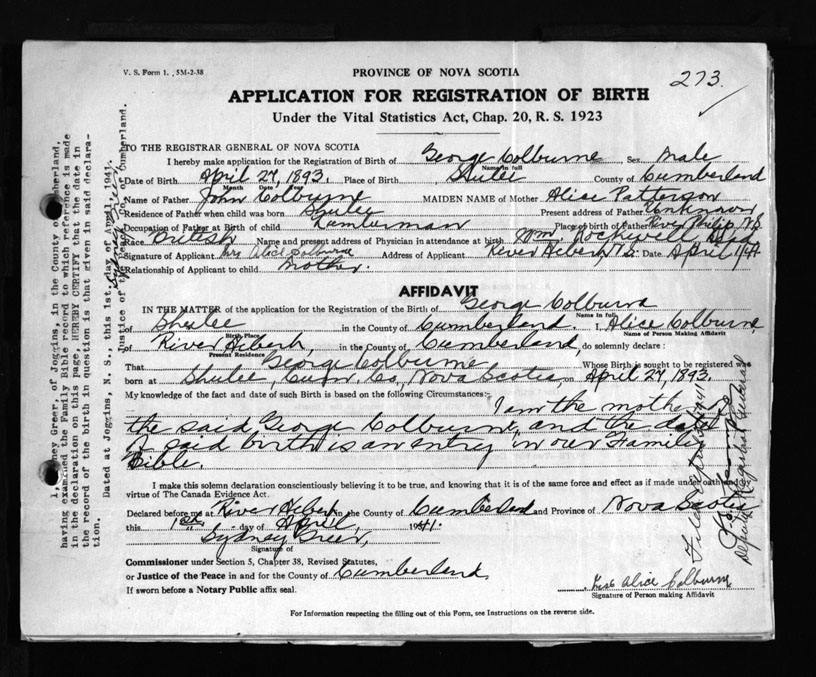 V. S. Form 1. , 5M-2-38
PROVINCE OF NOVA SCOTIA
273.
APPLICATION FOR REGISTRATION OF BIRTH
Under the Vital Statistics Act, Chap. 20, R. S. 1923
TO THE REGISTRAR GENERAL OF NOVA SCOTIA
I hereby make application for the Registration of Birth of George Colburne Sex Male
Name in full
Date of Birth April 27, 1893. Place of Birth Shulee County of Cumberland
Month Date Year
Name of Father John Colburne MAIDEN NAME of Mother Alice Patterson
Residence of Father when child was born Shulee Present address of Father Unknown
Occupation of Father at Birth of child Lumberman Place of birth of Father River Philip N.S.
Race British Name and present address of Physician in attendance at birth Wm Rockwell Dead
Signature of Applicant Mrs Alice Colburne Address of Applicant River Hebert N.S. Date April 1/41
Relationship of Applicant to child Mother.
AFFIDAVIT
IN THE MATTER of the application for the Registration of the Birth of George Colburne
Name in full
of Shulee in the County of Cumberland. I, Alice Colburne
Birth Place Name of Person Making Affidavit
of River Hebert, in the County of Cumberland, do solemnly declare :
Present Residence
That George Colburne Whose Birth is sought to be registered was
born at Shulee, Cum. Co., Nova Scotia on April 27, 1893.
My knowledge of the fact and date of such Birth is based on the following Circumstances:-
I am the mother
the said George Colburne, and the date
of said birth is an entry in our Family
Bible.
I make this solemn declaration conscientiously believing it to be true, and knowing that it is of the same force and effect as if made under oath and by
virtue of The Canada Evidence Act.
Declared before me at River Hebert in the County of Cumberland and Province of Nova Scotia
this 1st. day of April, 1941.
Sydney Greer,
Signature of
Commissioner under Section 5, Chapter 38, Revised Statutes,
or Justice of the Peace in and for the County of Cumberland
If sworn before a Notary Public affix seal.
Alice Colburne
Signature of Person making Affidavit
For Information respecting the filling out of this Form, see Instructions on the reverse side.
I, Sydney Greer, of Joggins, in the County of Cumberland.
having examined the Family Bible record to which reference is made
in the declaration on this page, HEREBY CERTIFY that the date in
the record of the birth in question is that given in said declara-
tion.
Dated at Joggins, N. S., this 1st. day of April, 1941.
Justice of the Peace, Co. of Cumberland.
Deputy Registrar General